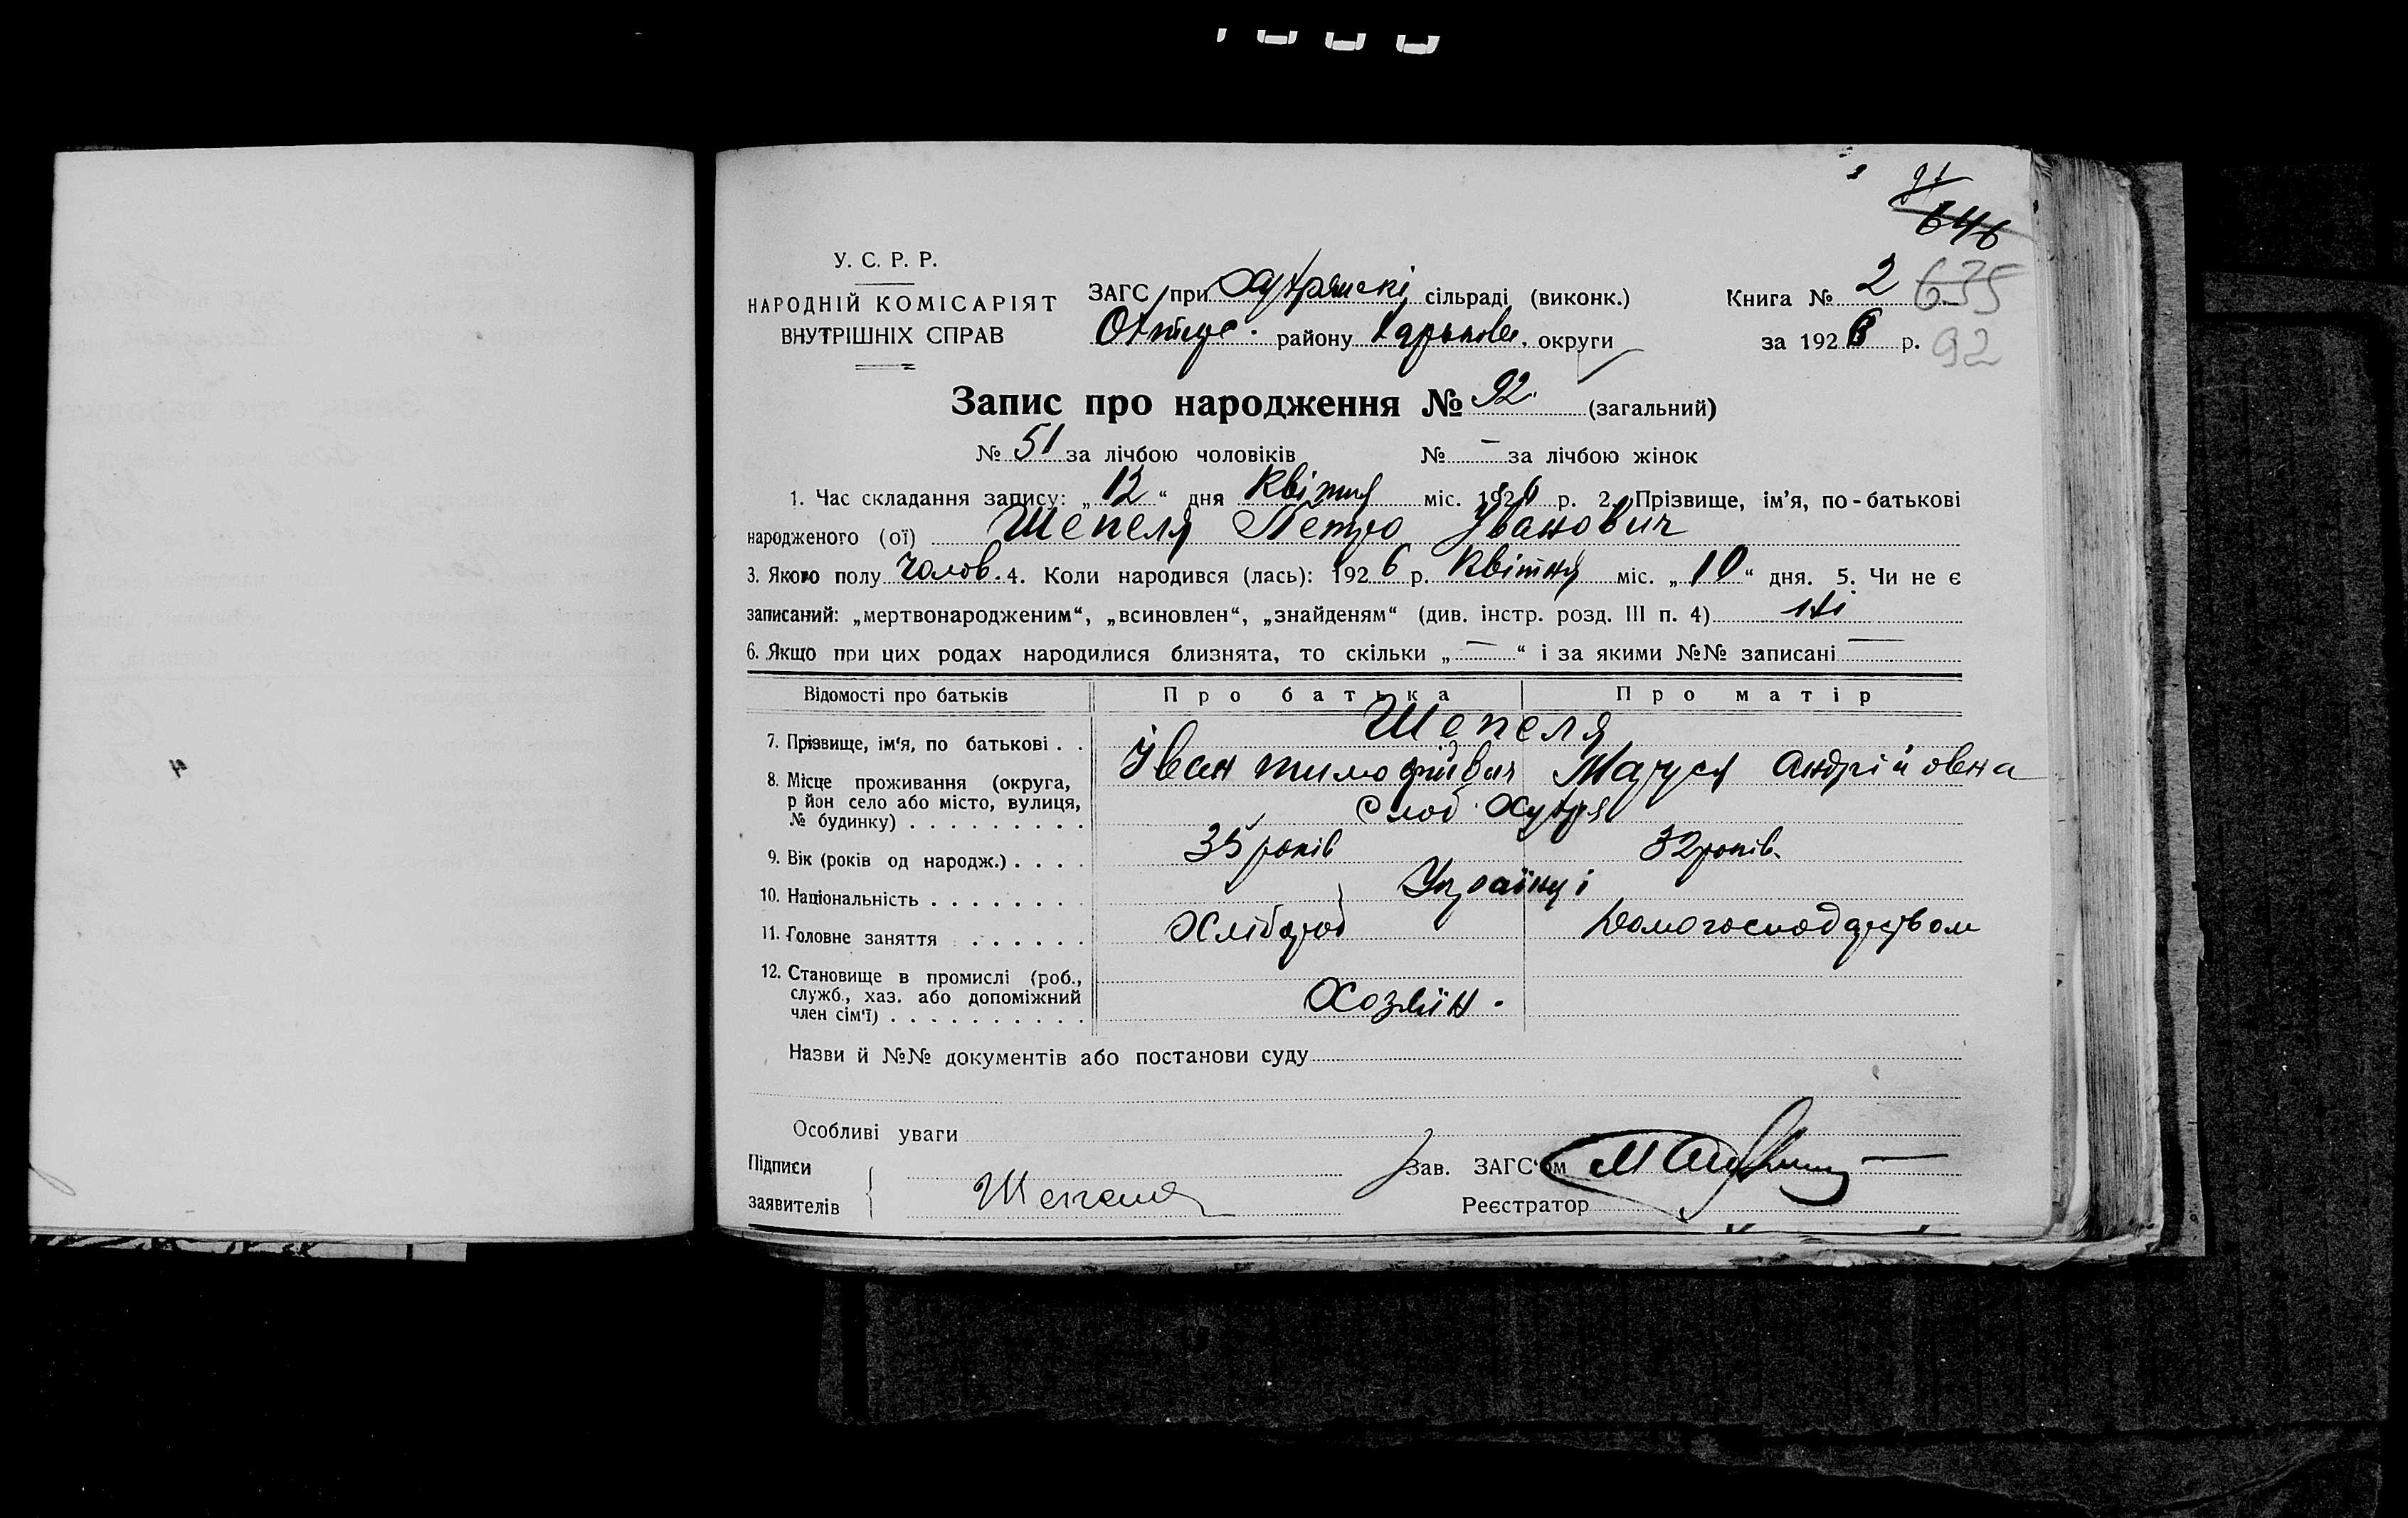 91
646
У. С. Р. Р.
НАРОДНІЙ КОМІСАРІЯТ
ВНУТРІШНІХ СПРАВ
ЗАГС при сільраді (виконк.)
Охтир. району Харьков. округи
Книга № 2 635
за 1926 р. 92
Запис про народження № 92. (загальний)
№ 51 за лічбою чоловіків № — за лічбою жінок
1. Час складання запису: „12“ дня Квітня міс. 1926 р. 2. Прізвище, ім’я, по-батькові
народженого (ої) Шепеля Петро Іванович
3. Якого полу Чолов. 4. Коли народився (лась): 1926 р. Квітня міс. „10“ дня. 5. Чи не є
записаний: „мертвонародженим“, „всиновлен“, „знайденям“ (див. інстр. розд. III п. 4) ні
6. Якщо при цих родах народилися близнята, то скільки „—“ і за якими №№ записані —
Відомості про батьків Про батька Про матір
7. Прізвище, ім‘я, по батькові . . Шепеля
Іван тимофійвич Маруся Андрійовна
8. Місце проживання (округа,
р йон село або місто, вулиця,
№ будинку) . . . . . . . . . Слоб.
9. Вік (років од народж.) . . . . 35 років 32 років.
10. Національність . . . . . . . . Українці
11. Головне заняття . . . . . . Хлібороб Домогосподарством
12. Становище в промислі (роб.,
служб., хаз. або допоміжний
член сім‘ї) . . . . . . . . . . Хозяїн.
Назви й №№ документів або постанови суду
Особливі уваги
Підписи
заявителів Шепеля
Зав. ЗАГС‘ом
Реєстратор